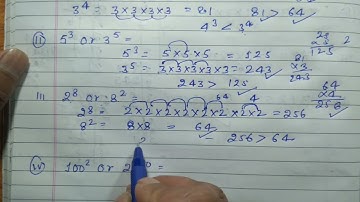 3⁴ = 3×3×3×3 = 81 81 > 64
4³ < 3⁴
ii) 5³ or 3⁵ =
5³ = 5×5×5 = 125
3⁵ = 3×3×3×3×3 = 243
243 > 125
25
×5
125
81
×3
243
iii 2⁸ or 8² =
2⁸ = 2×2×2×2×2×2×2×2 = 256
64
×4
256
8² = 8×8 = 64
256 > 64
iv) 100² or